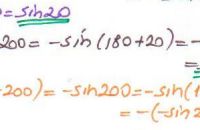 =sin20
200 = -sin(180+20) = -
=
+200) = -sin200 = -sin(1
= -(-sin2